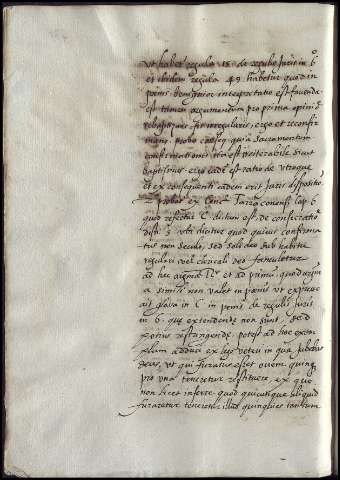 vt habet regula 15 de regulis Juris in 6
et ibidem regula 49 habetur quod in
poenis benignior interpretatio est facienda
est tamen argumentum pro prima opinio
rebaptizans fit irregularis, ergo et reconfir
mans. probo conseq. quia sacramentum
confirmationis ita est initerabile sicut
baptismus. ergo eadē est ratio de vtroque
et ex consequenti eadem erit juris dispositio
2 probat ex Conci. cap. 6
quod refertur C. dictum est. de consecratio
dist. 5 vbi dicitur quod quicus confirma
tus non seculo, sed soli deo sub habitu
regulari vel clericali deo famuletur
ad hec et ad primū. quod argum
a simili non valet in poenis vt expresse
ait glosa in C. in poenis de regulis Juris
in 6. que extendende non sunt, sed
potius restringende. potest ad hoc exem
plum adduci ex lege veteri in qua jubebat
deus, vt qui furatus esset ouem quinque
pro vna teneretur restituere ex quo
non licet inferre quod quicunque aliquid
furaretur teneretur illud quinquies tantum